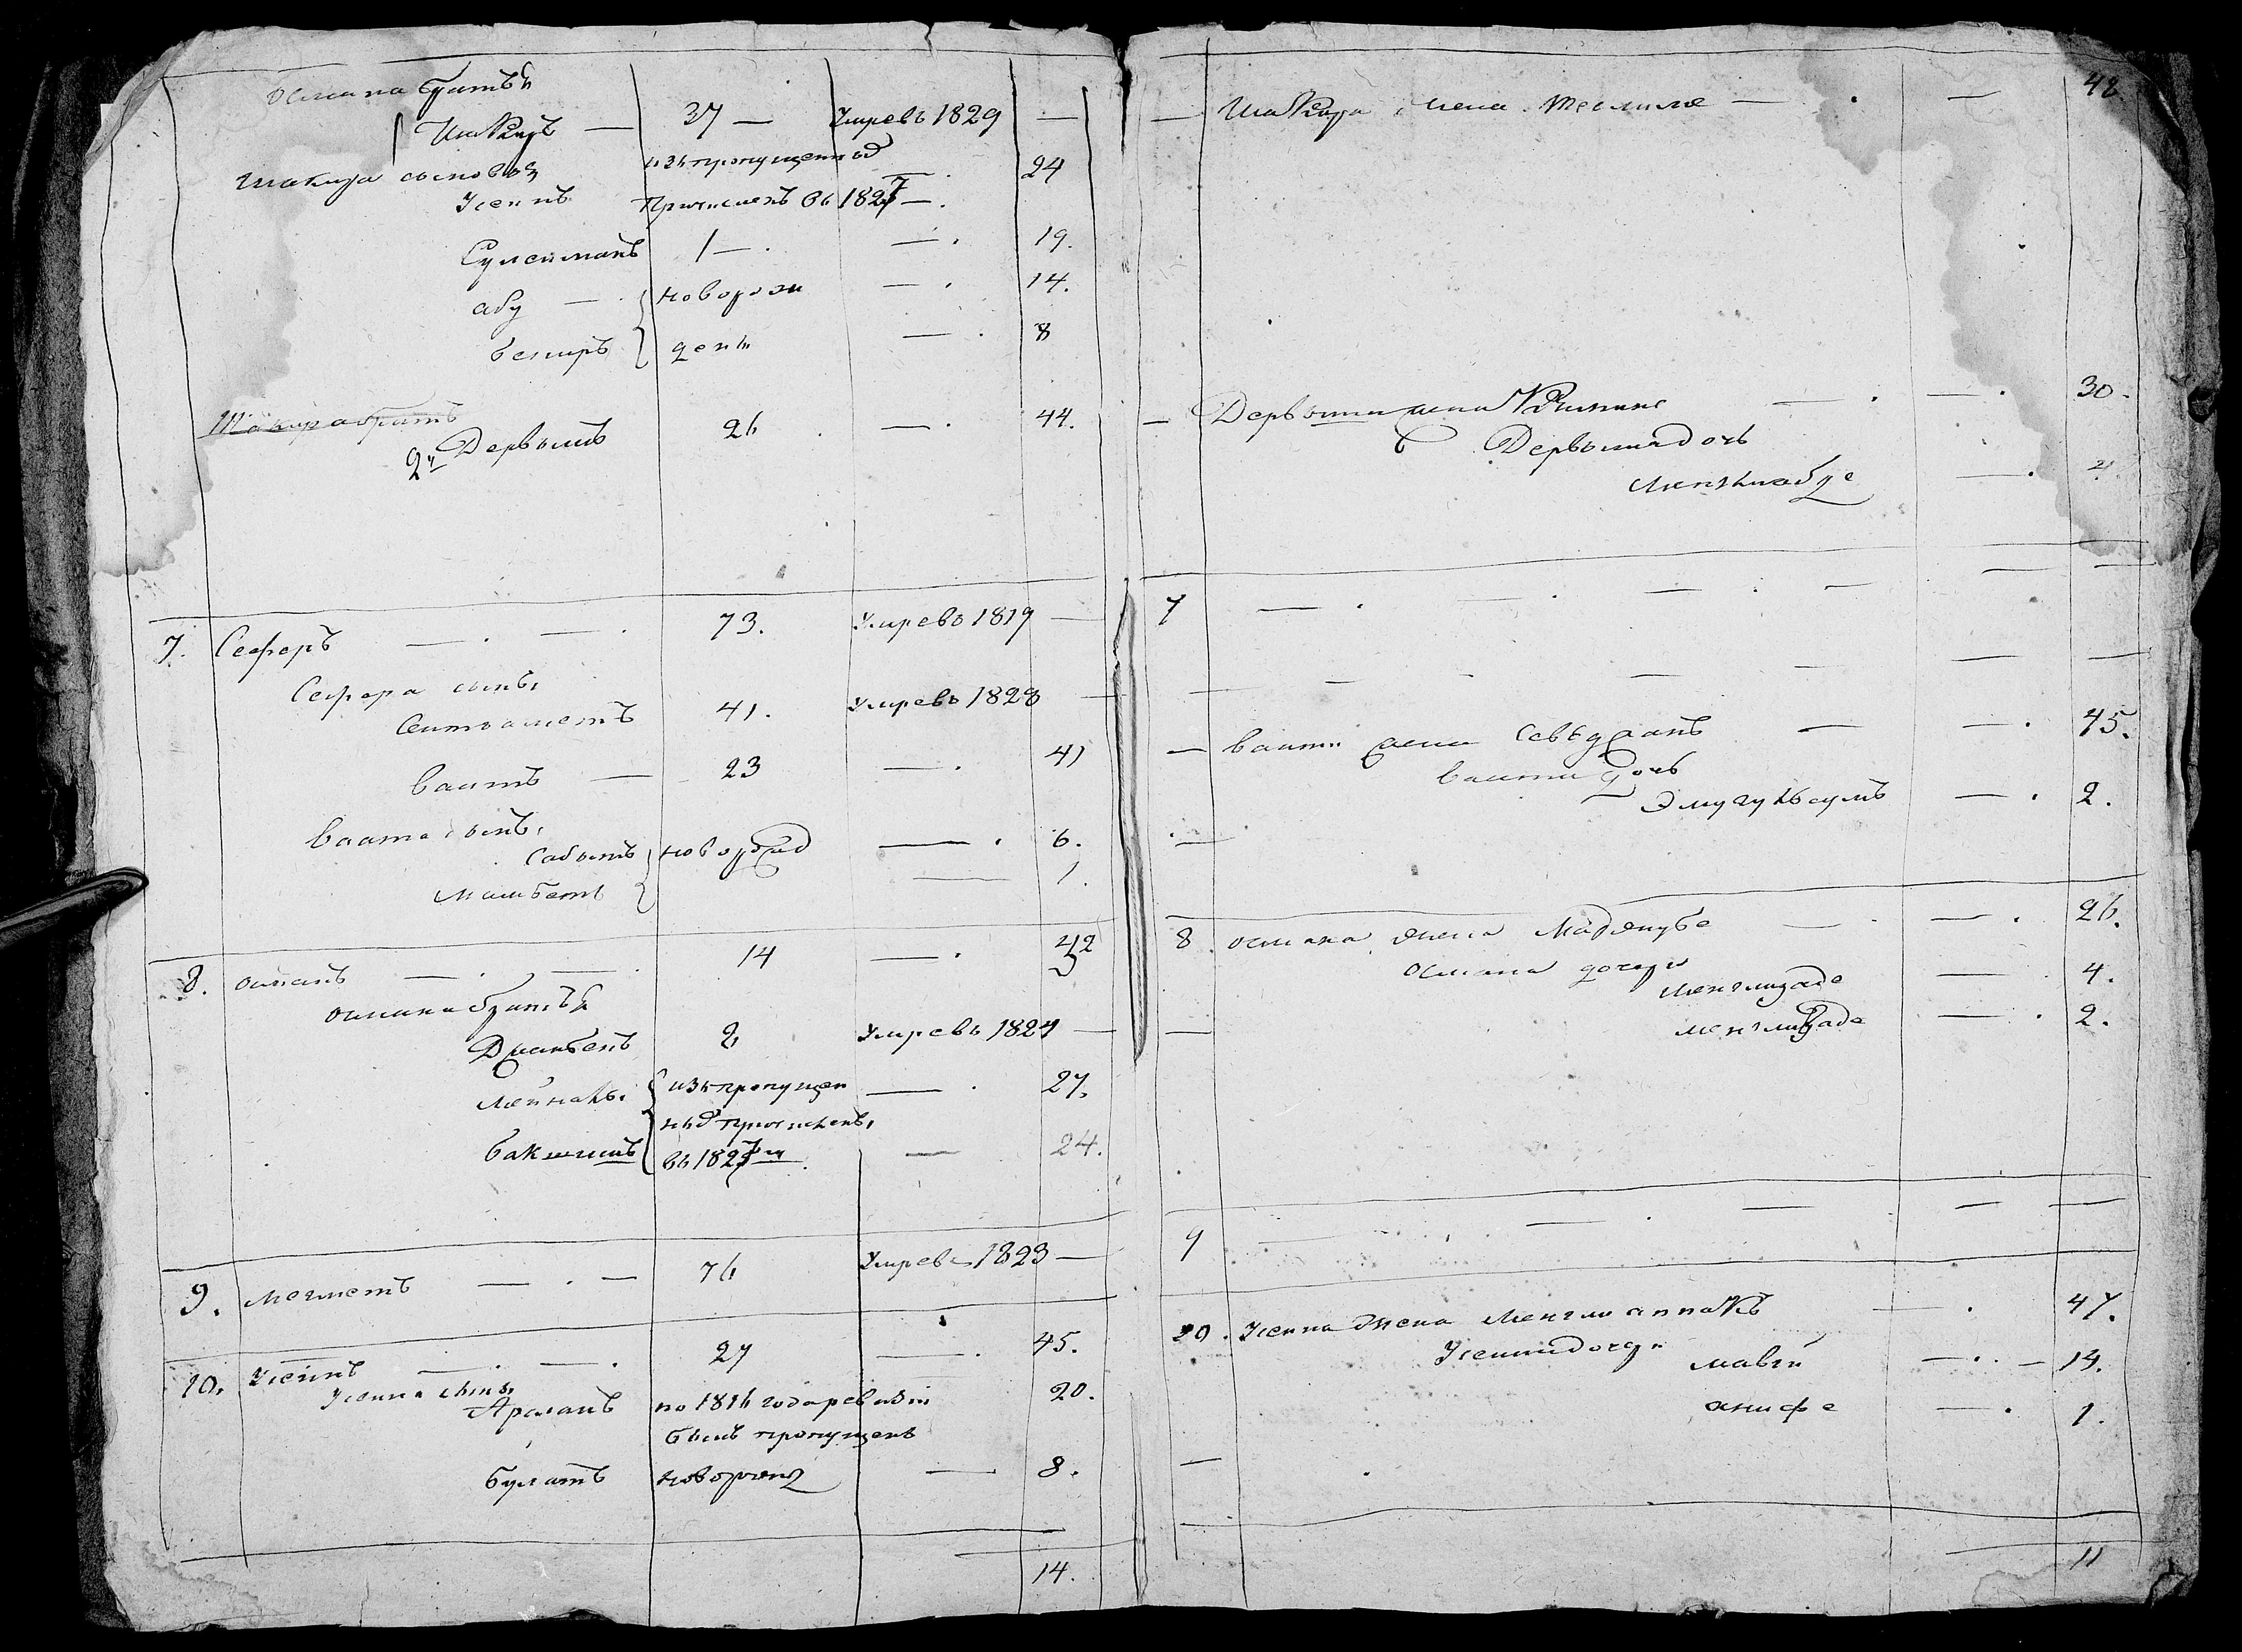 Османа братья
Шакиръ — 37 — Умре въ 1829 —
Шакира сыновья изъ пропущенныхъ 24
Усеинъ Причисленъ въ 1827 — .
Сулейманъ 1 — . — . 19.
абу — новорож — . 14.
бекиръ дены — . 8
Шакира братъ
2й Дервышъ 26 . — . 44.
7. Сеферъ — . — . 73. Умре въ 1819 —
Сефера сынъ,
Сеитъаметъ 41. Умре въ 1828 —
Ваитъ — 23 — . 41
Ваита сынъ,
Сабытъ новорожд — . 6.
Мамбетъ — 1.
8. османъ — . — . 14 — . 32
османа братья
Джанбекъ 2 Умре въ 1824 —
Мейнакъ. изъ пропущен — . 27.
ныхъ причисленъ,
бакшишъ въ 1827мъ . — 24.
9. мегметъ — . — 76 Умре въ 1823 —
10. Усеинъ — . — . 27 — . 45.
Усеина сынъ,
Арсланъ по 1816 года ревизии 20.
былъ пропущенъ
булатъ новорожд — 8.
14.
— Шакира жена Теслиме — . — 42.
— Дервыша жена — . — . 30.
Дервыша дочь
— . 4.
7 — . — . — . — — —
— — . — — — —
— Ваита жена — — . 45.
Ваита дочь
Эмугульсумъ — . 2.
. —
8. османа жена — — . 26.
Османа дочери
менглизаде — . 4.
— — . 2.
9 — . — . — — —
10. Усеина жена Менгли аппакъ — . 47.
Усеина дочери
мавей — . — 14.
анифе — . 1.
— .
11